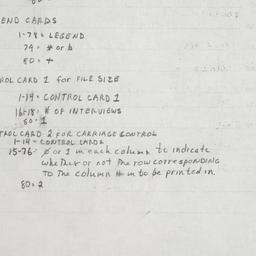 END CARDS
1-78 = LEGEND
79 = # or b
80 = +
ROL CARD 1 for FILE SIZE
1-14 = CONTROL CARD 1
16-18 = # OF INTERVIEWS
80 = 1
TROL CARD 2 FOR CARRIAGE CONTROL
1-14 = CONTROL CARD 2
15-76 = 0 or 1 in each column to indicate
whether or not the row corresponding
to the column # is to be printed in.
80 = 2